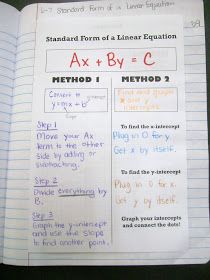 6-7 Standard Form of a Linear Equation
Standard Form of a Linear Equation
Ax + By = C
METHOD 1
Convert to
y=mx+b
Step 1
Move your Ax
term to the other
side by adding or
subtracting.
Step 2
Divide everything by
B.
Step 3
Graph the y-intercept
and use the slope
to find another point.
METHOD 2
Find and graph
x and y
intercepts.
To find the x-intercept
Plug in 0 for y.
Get x by itself.
To find the y-intercept
Plug in 0 for x.
Get y by itself.
Graph your intercepts
and connect the dots!